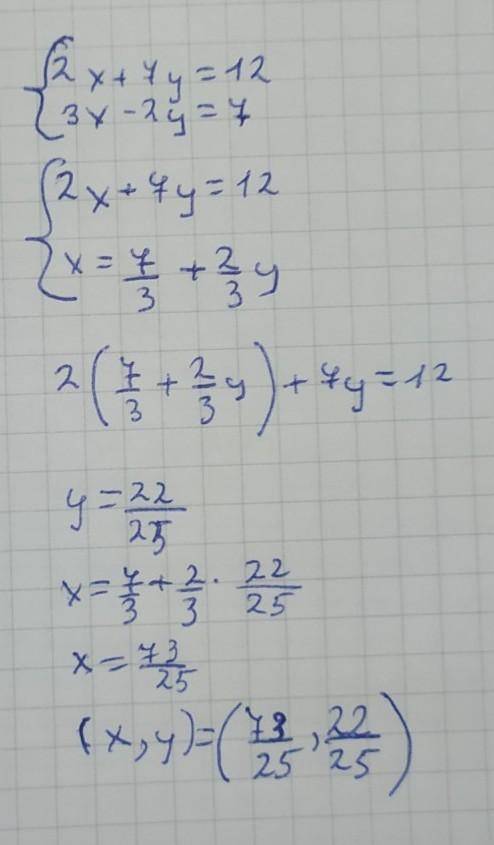 {2x+7y=12
3x-2y=7
{2x+7y=12
x=7/3+2/3y
2(7/3+2/3y)+7y=12
y=22/25
x=7/3+2/3·22/25
x=73/25
(x,y)=(73/25,22/25)